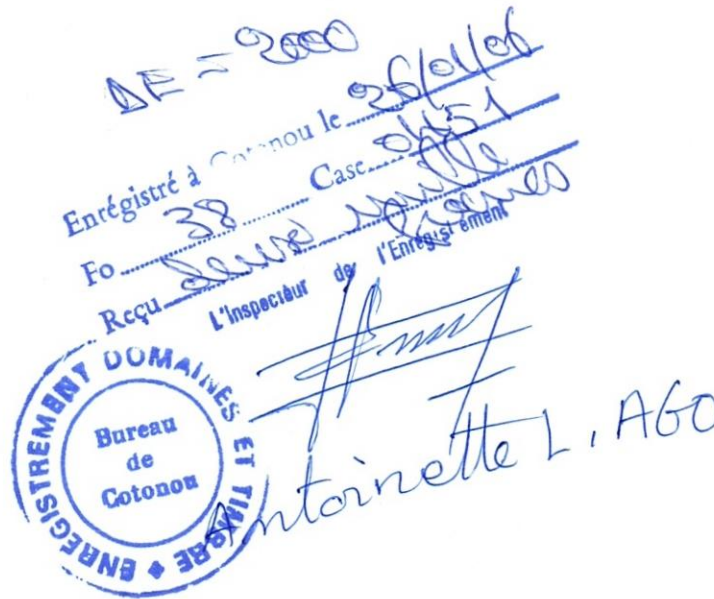 DE = 2000
Enrégistré à Cotonou le 26/01/06
Fo 38 Case 0451
Reçu deux mille francs
L'Inspecteur de l'Enregistrement
ENREGISTREMENT DOMAINES ET TIMBRE
Bureau
de
Cotonou
Antoinette L. AGO